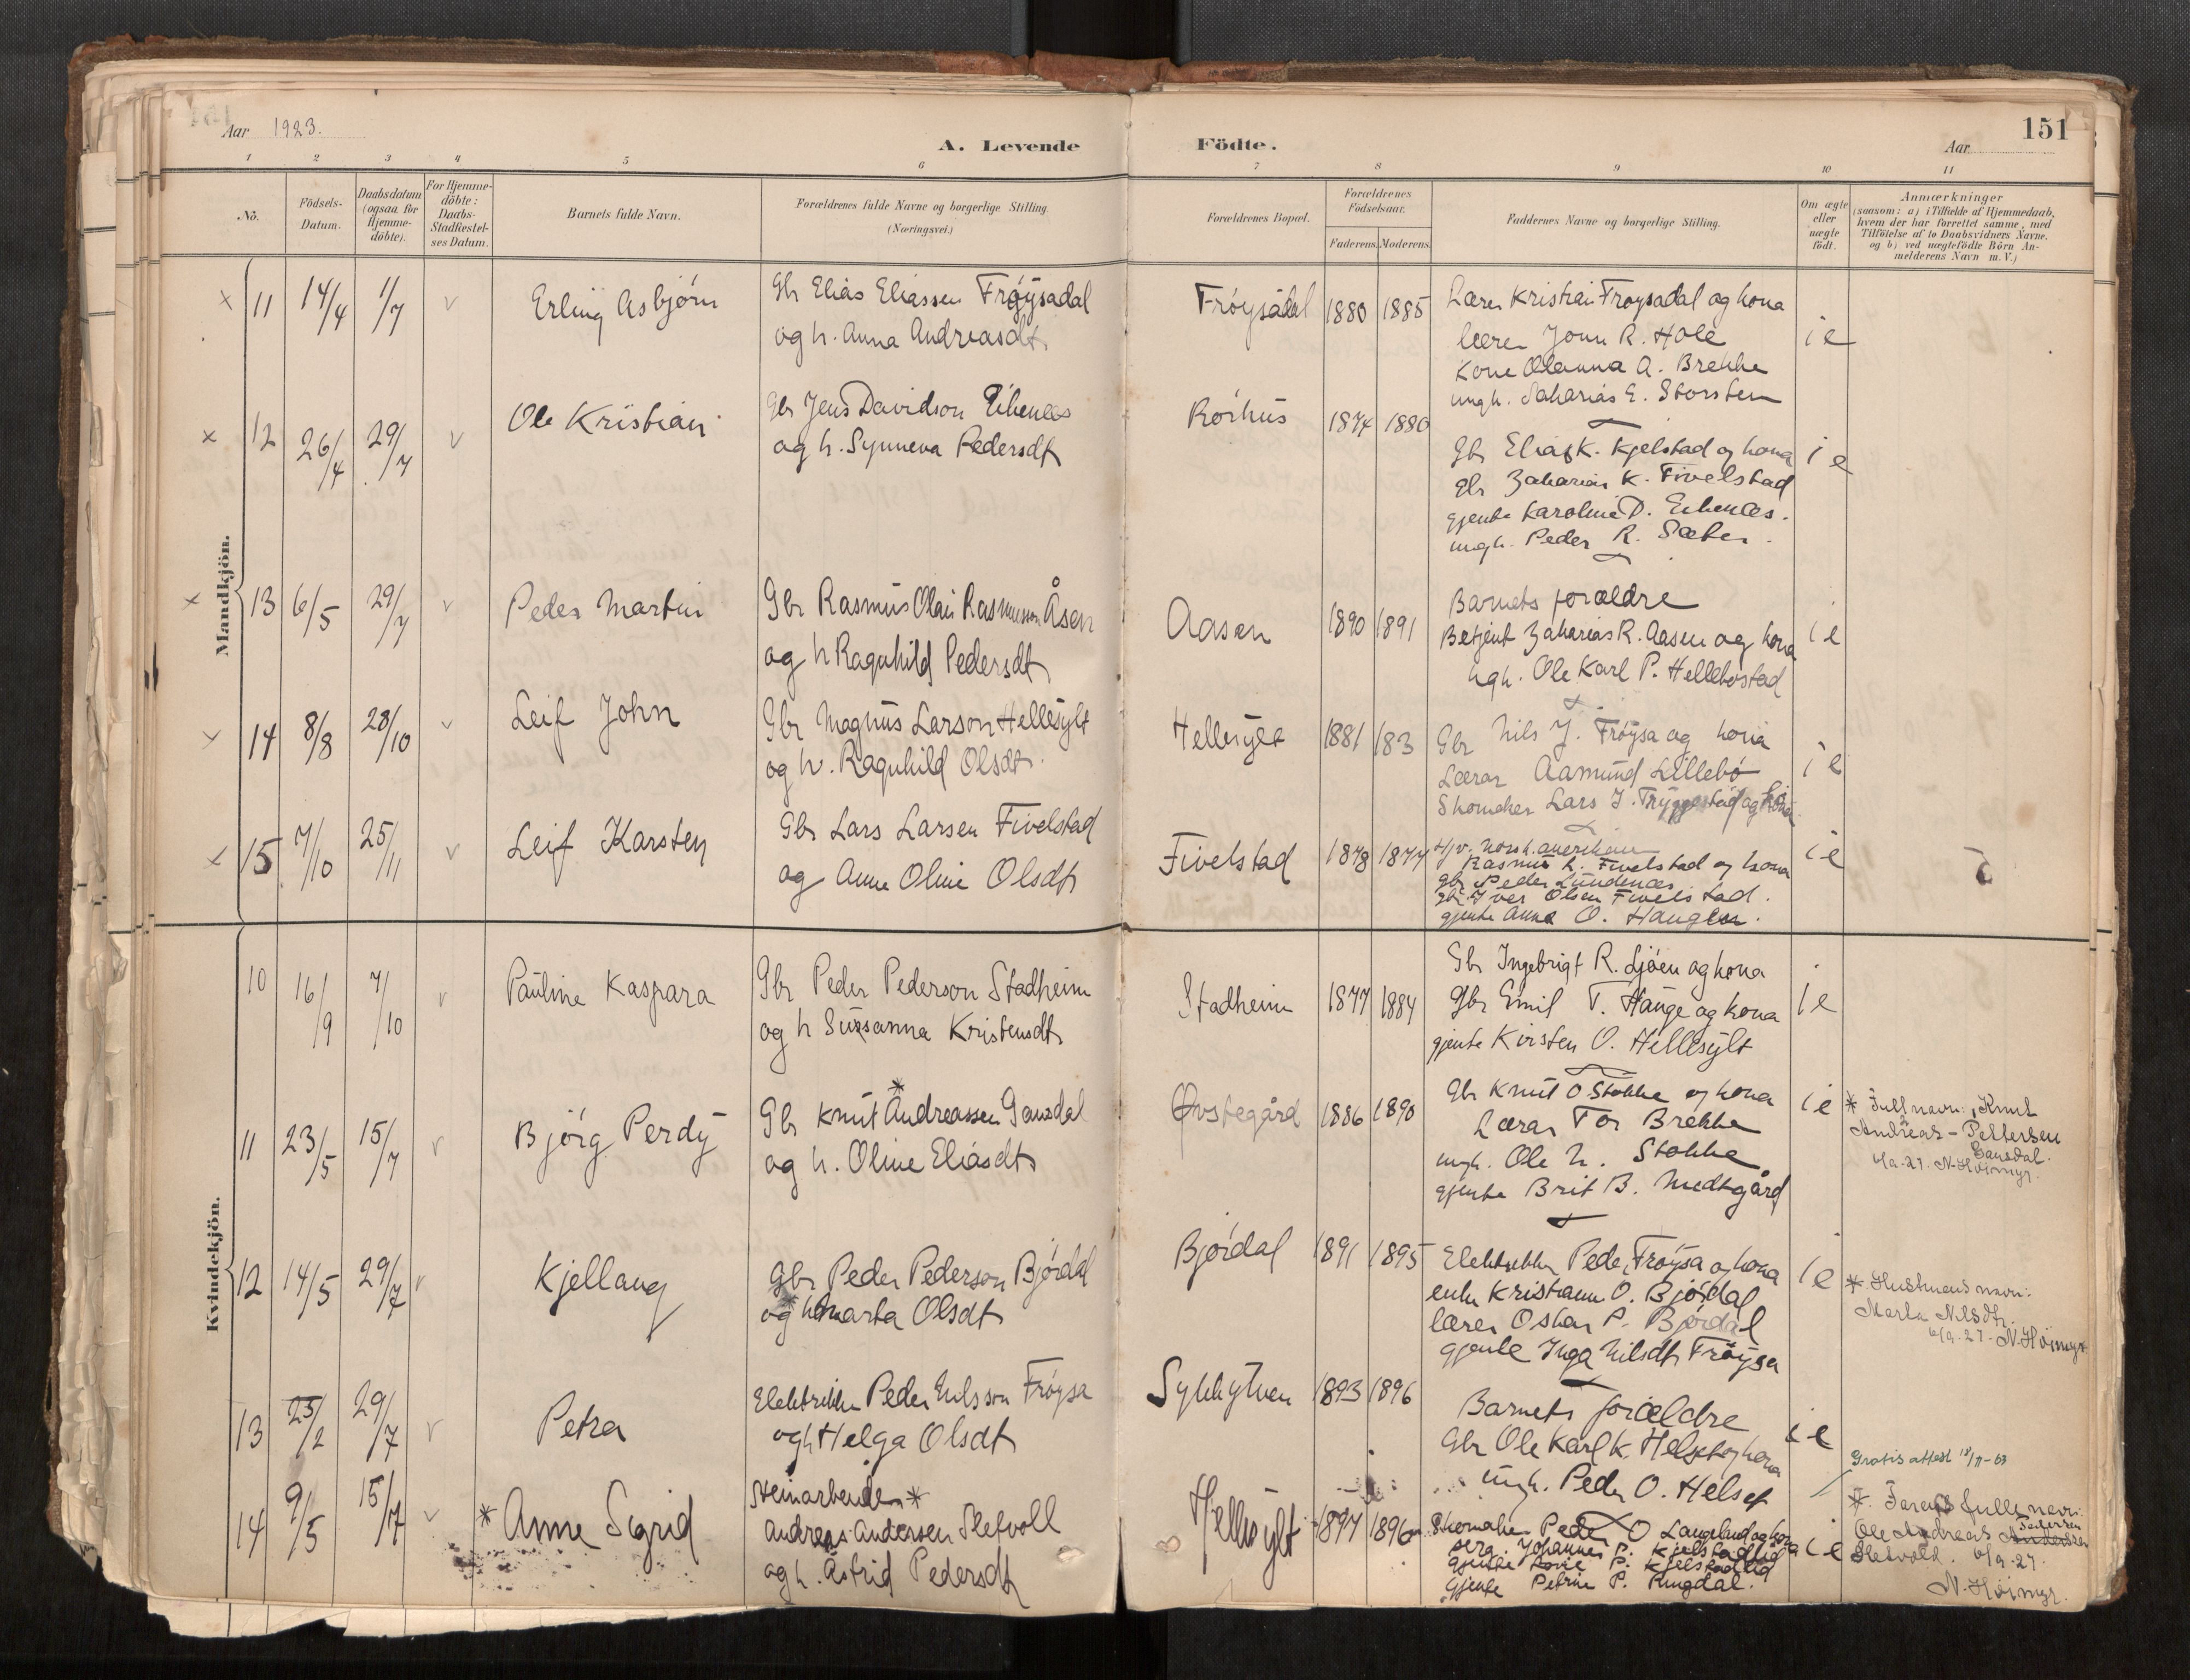 Aar 1923.
A. Levende Födte.
Aar
151
1 2 3 4 5 6 7 8 9 10 11
Nö.
Födsels-
Datum.
Daabsdatum
(ogsaa for
Hjemme-
döbte).
For Hjemme-
döbte:
Daabs-
Stadfæstel-
ses Datum.
Barnets fulde Navn.
Forældrenes fulde Navne og borgerlige Stilling.
(Næringsvei.)
Forældrenes Bopæl.
Forældrenes
Födselsaar.
Faderens. Moderens.
Faddernes Navne og borgerlige Stilling.
Om ægte
eller
uægte
födt.
Anmærkninger
(saasom: a) i Tilfælde af Hjemmedaab,
hvem der har forrettet samme, med
Tilföielse af to Daabsvidners Navne.
og b) ved uægtefödte Börn An-
melderens Navn m. V.)
Mandkjön.
x 11 14/4 1/7 v Erling Asbjörn
Gbr Elias Eliassen Fröysadal
og h. Anna Andreasdt.
Fröysadal 1880 1885
Lærer Kristian Fröysadal og kona
lærer Jonn R. Hole
Kone Olanna A. Brekke
ungk. Sakarias E. Storsten
i e
x 12 26/4 29/7 v Ole Kristian
Gbr Jens Davidson Eikenes
og h. Synneva Pedersdt
Rörhus 1874 1880
Gbr Elias K. Kjelstad og kona
Gbr Zakarias K. Fivelstad
gjente Karoline D. Eikenæs.
ungk. Peder R. Sæter.
i e
x 13 6/5 29/7 v Peder Martin
Gbr Rasmus Olai Rasmusson Åsen
og h Ragnhild Pedersdt
Aasen 1890 1891
Barnets foræeldre
Betjent Zakarias R. Aasen og kona
ugk. Ole Karl P. Hellebostad
i e
x 14 8/8 28/10 v Leif John
Gbr Magnus Larson Hellesylt
og h. Ragnhild Olsdt.
Hellesylt 1881 183
Gbr Nils J. Fröysa og kona
Lærar Aamund Lillebö
Skomaker Lars J. Tryggestad og kona
i e
x 15 7/10 25/11 v Leif Karsten
Gbr Lars Larsen Fivelstad
og Anne Oline Olsdt
Fivelstad 1878 1877
norsk. amerikaner
Rasmus L. Fivelstad og kona
gbr Peder Lundenæs
gbr Iver Olsen Fivelstad.
gjente Anna O. Haugen.
i e
Kvindekjön.
10 16/9 7/10 v Pauline Kaspara
Gbr Peder Pederson Stadheim
og h Susanna Kristensdt
Stadheim 1877 1884
Gbr Ingebrigt R. Ljöen og kona
Gbr Emil T. Hauge og kona
gjente Kirsten O. Hellesylt
i e
11 23/5 15/7 v Bjørg Perdy
Gbr Knut * Andreassen Gausdal
og h. Oline Eliasdt
Øvstegård 1886 1890
Gbr Knut O Stokke og kona
Lærar Tor Brekke
ungk. Ole N. Stokke
gjente Brit B. Medtgård
i e
* Fullt navn: Knut
Andreas-Pettersen
Gausdal.
6/9-27. N. Höimyr.
12 14/5 29/7 v Kjellaug
Gbr Peder Pederson Björdal
og h * Marta Olsdt
Björdal 1891 1895
Elektriker Peder Fröysa og kona
enke Kristianne O. Björdal
lærer Oskar P. Björdal
gjente Inga Nilsdt Fröysa
i e
* Hustruens navn:
Marta Nilsdtr.
6/9-27- N. Höimyr
13 25/2 29/7 v Petra
Elektriker Peder Nilsson Fröysa
og h Helga Olsdt
Sykkylven 1893 1896
Barnets forældre
Gbr Ole Karl K. Helset og kona
ungk. Peder O. Helset
i e
Gratis attest 18/11-63
14 9/5 15/7 v * Anne Sigrid
Steinarbeider *
Andreas Andersen Sletvoll
og h. Astrid Pedersdt
Hellesylt 1897 1896
Skomaker Peder O Langelund og kona
serg. Johannes P. Kjelstadlid
gjente P. Kjelstadlid
Gjente Petrine P. Ringdal.
i e
*. Farens fulle navn:
Ole Andreas Andersen Pedersen
Sletvold. 6/9-27.
N. Höimyr.